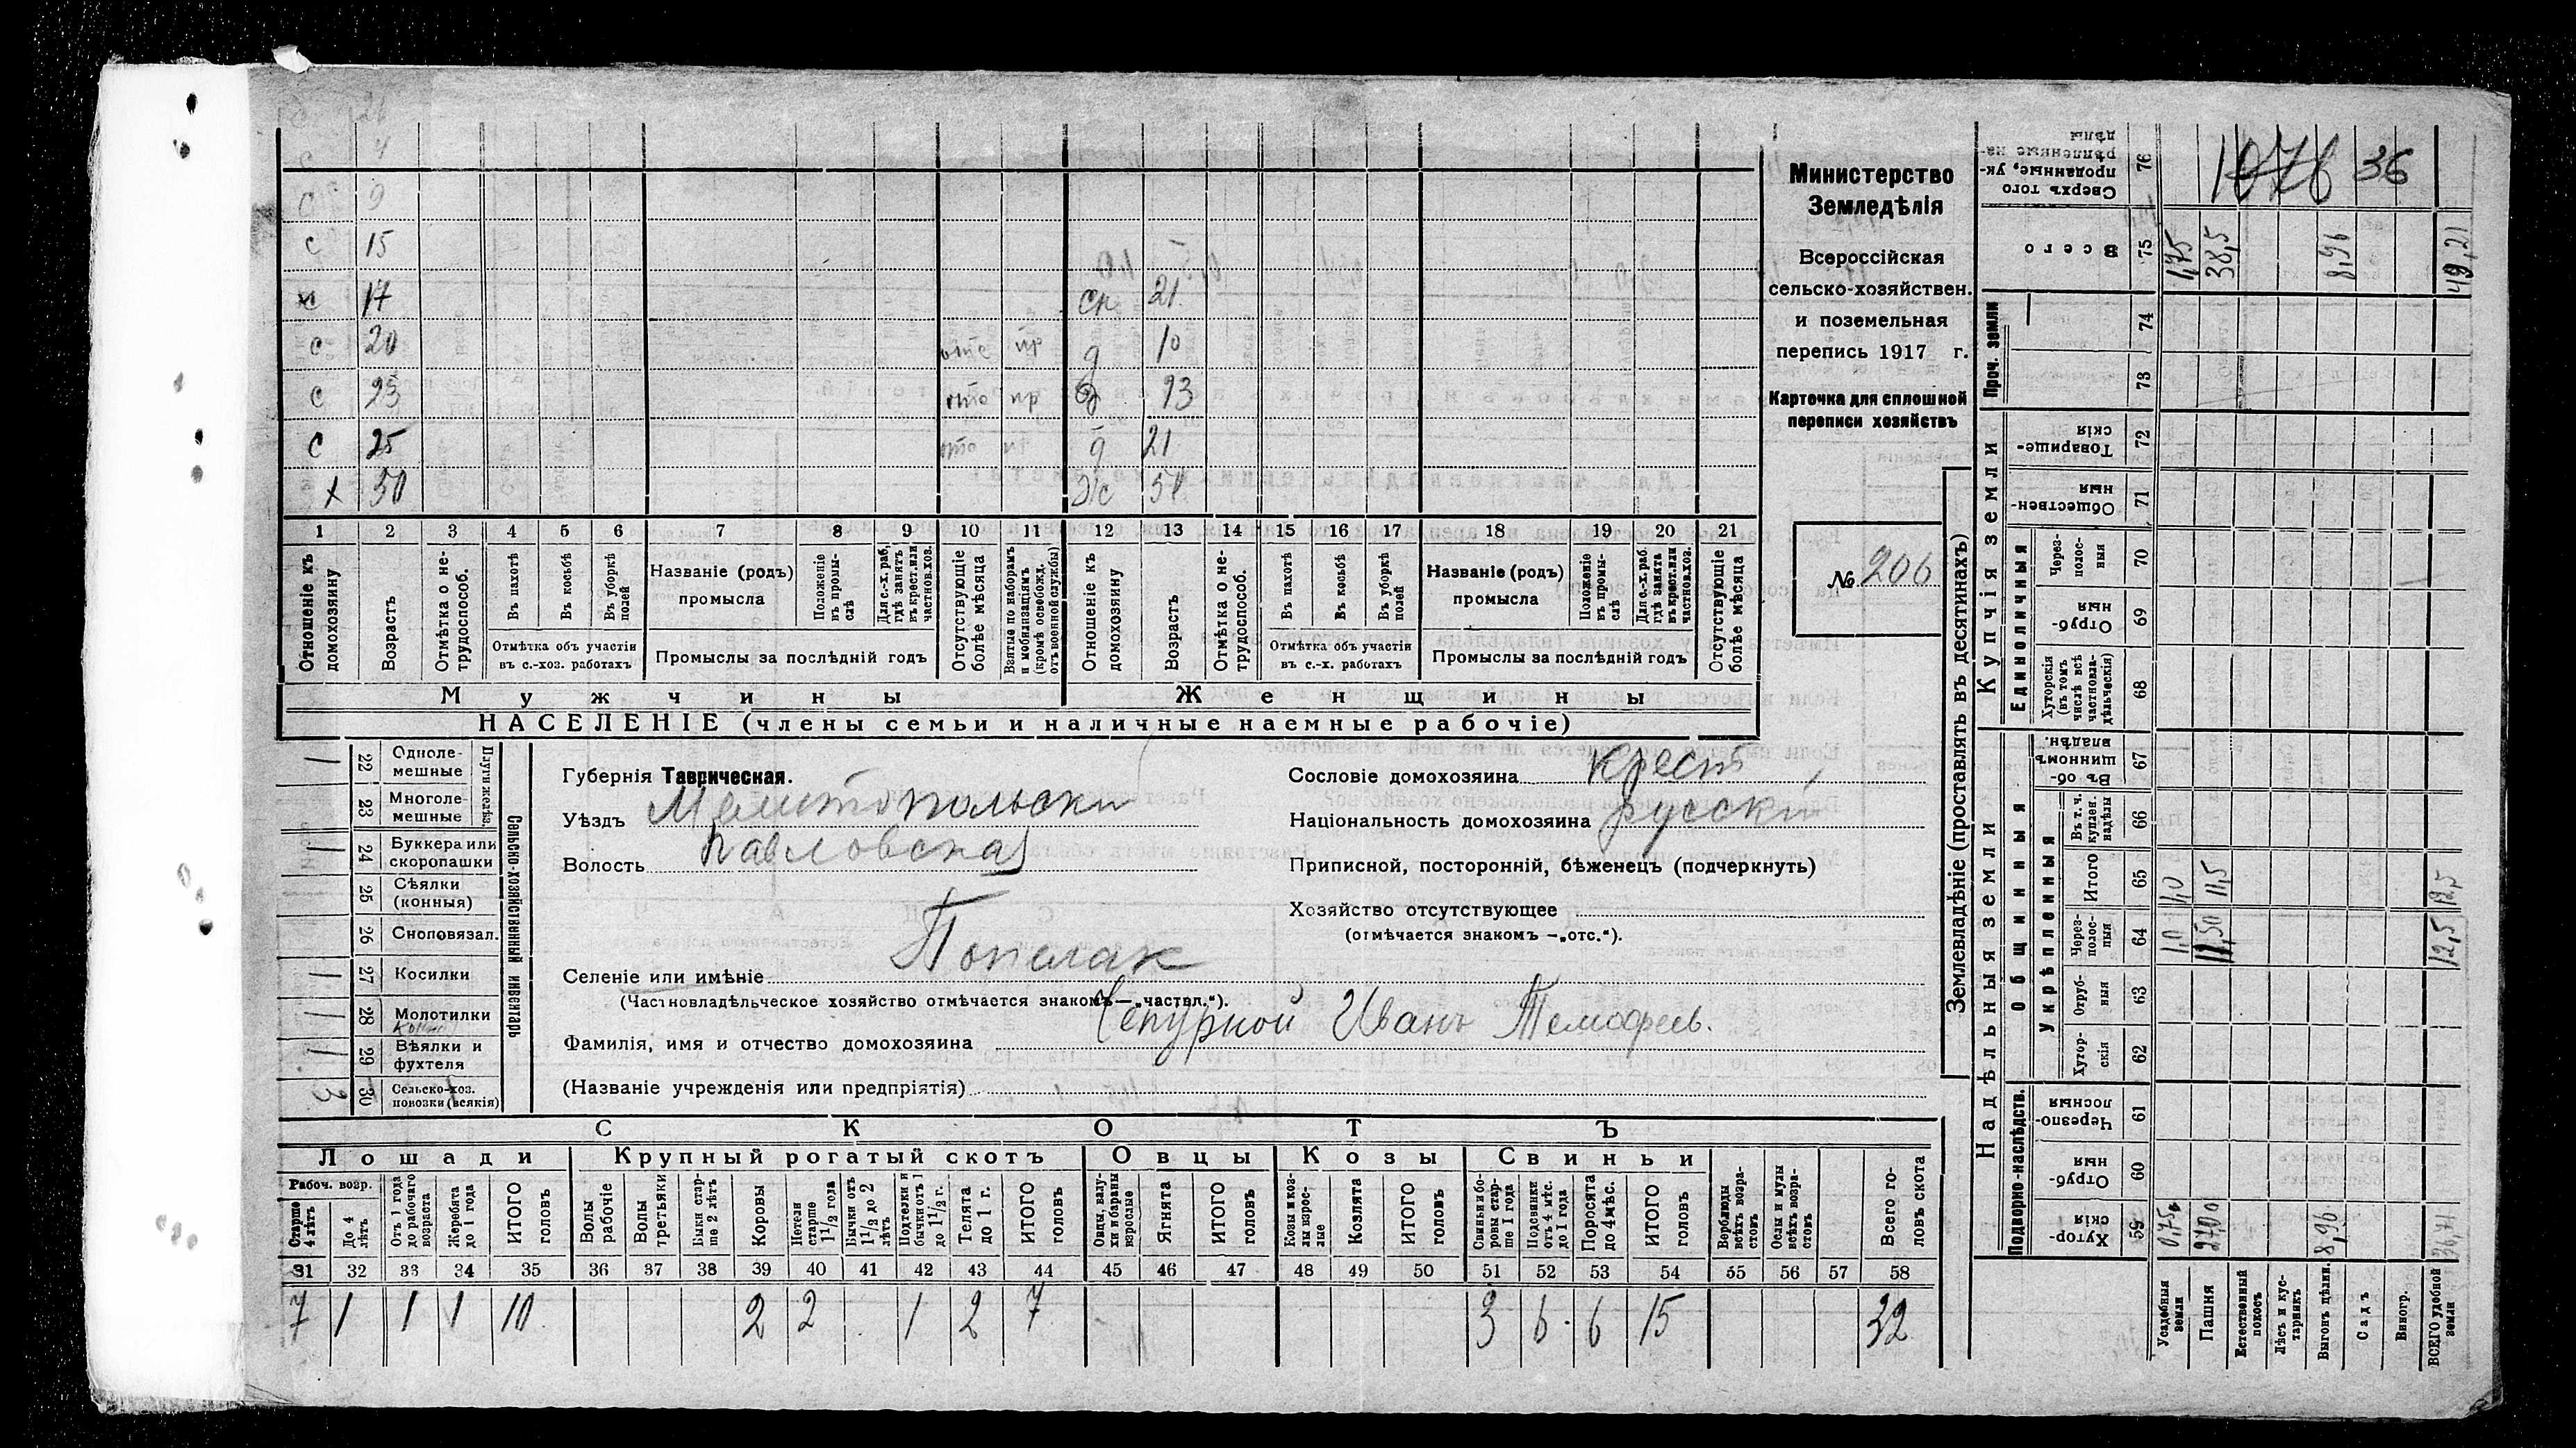 С 9
С 15
С 17 сн 21
С 20 отс пр д 10
С 23 отс пр д 13
С 25 отс д 21
х 50 ж 50
1 2 3 4 5 6 7 8 9 10 11 12 13 14 15 16 17 18 19 20 21
Отношеніе къ домохозяину
Возрастъ
Отмѣтка о нетрудоспособ.
Въ пахотѣ
Въ косьбѣ
Въ уборкѣ полей
Отмѣтка объ участіи
въ с.-хоз. работахъ
Названіе (родъ)
промысла
Положеніе въ промыслѣ
Для с.-х. раб., гдѣ занятъ въ крест. или частнов. хоз.
Промыслы за послѣдній годъ
Отсутствующіе болѣе мѣсяца
Взятые по наборамъ и мобилизаціямъ (кромѣ освобожд. отъ военной службы)
Отношеніе къ домохозяину
Возрастъ
Отмѣтка о нетрудоспособ.
Въ пахотѣ
Въ косьбѣ
Въ уборкѣ полей
Отмѣтка объ участіи
въ с.-х. работахъ
Названіе (родъ)
промысла
Положеніе въ промыслѣ
Для с.-х. раб. гдѣ занята въ крест. или частнов. хоз.
Промыслы за послѣдній годъ
Отсутствующіе болѣе мѣсяца
Мужчины Женщины
НАСЕЛЕНІЕ (члены семьи и наличные наемные рабочіе)
Министерство
Земледѣлія
Всероссійская
сельско-хозяйствен.
и поземельная
перепись 1917 г.
Карточка для сплошной
переписи хозяйствъ
№ 206
Сельско-хозяйственный инвентарь
Плуги желѣз.
22 Одноле-мешные 1
23 Многоле-мешные
24 Буккера или скоропашки 1
25 Сѣялки (конныя)
26 Сноповязал.
27 Косилки 1
28 Молотилки 1
29 Вѣялки и фухтеля 1
30 Сельско-хоз. повозки (всякія) 3
Губернія Таврическая.
Уѣздъ Мелитопольски
Волость Павловская
Селеніе или имѣніе Попелак
(Частновладѣльческое хозяйство отмѣчается знакомъ—„частвл.“).
Фамилія, имя и отчество домохозяина Чепурной Иванъ Темофеев.
(Названіе учрежденія или предпріятія)
Сословіе домохозяина крест
Національность домохозяина русски
Приписной, посторонній, бѣженецъ (подчеркнуть)
Хозяйство отсутствующее
(отмѣчается знакомъ —„отс.“).
СКОТЪ
Лошади Крупный рогатый скотъ Овцы Козы Свиньи
Рабоч. возр.
Старше 4 лѣтъ
До 4 лѣтъ
Отъ 1 года до рабочаго возраста
Жеребята до 1 года
ИТОГО головъ
Волы рабочіе
Волы третьяки
Быки старше 2 лѣтъ
Коровы
Нетели старше 1 1/2 года
Бычки отъ 1 1/2 до 2 лѣтъ
Подтелки и бычки отъ 1 до 1 1/2 г.
Телята до 1 г.
ИТОГО головъ
Овцы, валухи и бараны взрослые
Ягнята
ИТОГО головъ
Козы и козлы взрослые
Козлята
ИТОГО головъ
Свиньи и боровы старше 1 года
Подсвинки отъ 4 мѣс. до 1 года
Поросята до 4 мѣс.
ИТОГО головъ
Верблюды всѣхъ возрастовъ
Ослы и мулы всѣхъ возрастовъ
Всего головъ скота
31 32 33 34 35 36 37 38 39 40 41 42 43 44 45 46 47 48 49 50 51 52 53 54 55 56 57 58
7 1 1 1 10 2 2 1 2 7 3 6 6 15 32
Землевладѣніе (проставлять въ десятинахъ)
Надѣльныя земли Купчія земли Проч. земли
Подворно-наслѣдств. Общинныя Единоличныя
Укрѣпленныя
Сверхъ того проданные, укрѣпленные надѣлы 76 1076 36
Всего 75 1,75 38,5 8,96 49,21
74
73
Товарищескія 72
Общественныя 71
Черезполосныя 70
Отрубныя 69
Хуторскія (въ томъ числѣ всѣ частновладѣльческія) 68
Въ общинномъ владѣн. 67
Въ т. ч. куплен. надѣлы 66
Итого 65 1,0 11,5 12,5
Черезполосныя 64 1,0 11,50 12,5
Отрубныя 63
Хуторскія 62
Черезполосныя 61
Отрубныя 60
Хуторскія 59 0,75 27,00 8,96 36,71
Усадебныя земли
Пашня
Естественный покосъ
Лѣсъ и кустарникъ
Выгонъ цѣлин.
Садъ
Виногр.
ВСЕГО удобной земли